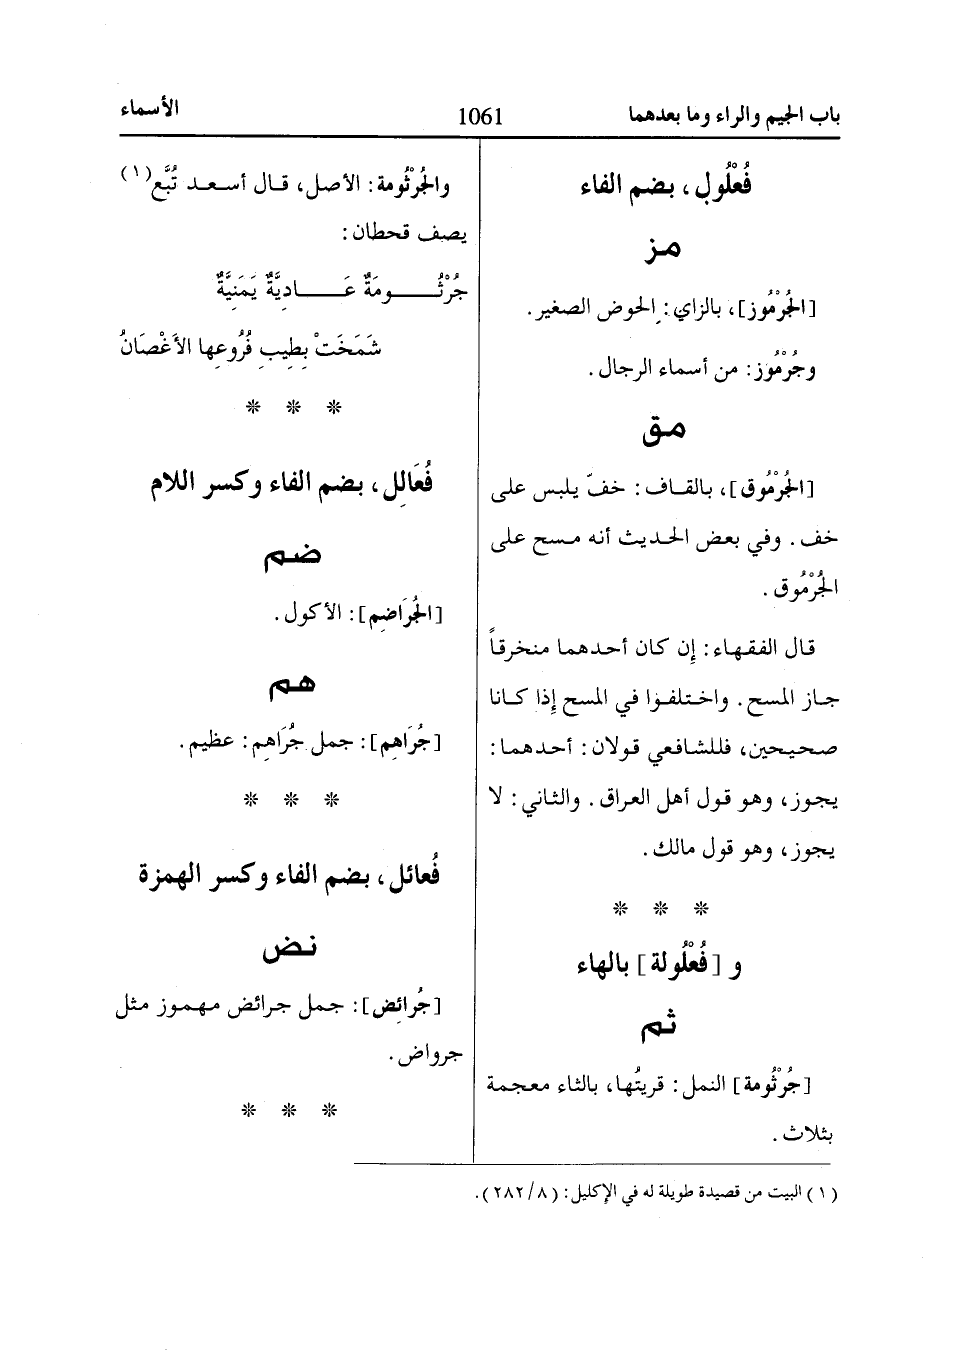 باب الجيم والراء وما بعدهما
1061
الأسماء
فُعْلُول، بضم الفاء
مز
[الجُرْمُوز]، بالزاي: الحوض الصغير.
وجُرْمُوز: من أسماء الرجال.
مق
[الجُرْمُوق]، بالقاف: خفّ يلبس على
خف. وفي بعض الحديث أنه مسح على
الجُرْمُوق.
قال الفقهاء: إن كان أحدهما منخرقاً
جاز المسح. واختلفوا في المسح إذا كانا
صحيحين، فللشافعي قولان: أحدهما:
يجوز، وهو قول أهل العراق. والثاني: لا
يجوز، وهو قول مالك.
* * *
و [فُعْلُولة] بالهاء
ثم
[جُرْثُومة] النمل: قريتُها، بالثاء معجمة
بثلاث.
والجُرْثُومة: الأصل، قال أسعد تُبَّع(١)
يصف قحطان:
جُرْثُومَةٌ عَادِيَّةٌ يَمَنِيَّةٌ
شَمَخَتْ بِطِيبِ فُرُوعِها الأَغْصَانُ
* * *
فُعَالِل، بضم الفاء وكسر اللام
ضم
[الجُرَاضِم]: الأكول.
هم
[جُرَاهِم]: جمل جُرَاهِم: عظيم.
* * *
فُعائل، بضم الفاء وكسر الهمزة
نض
[جُرائِض]: جمل جرائض مهموز مثل
جرواض.
* * *
(١) البيت من قصيدة طويلة له في الإكليل: (٨/٢٨٢).